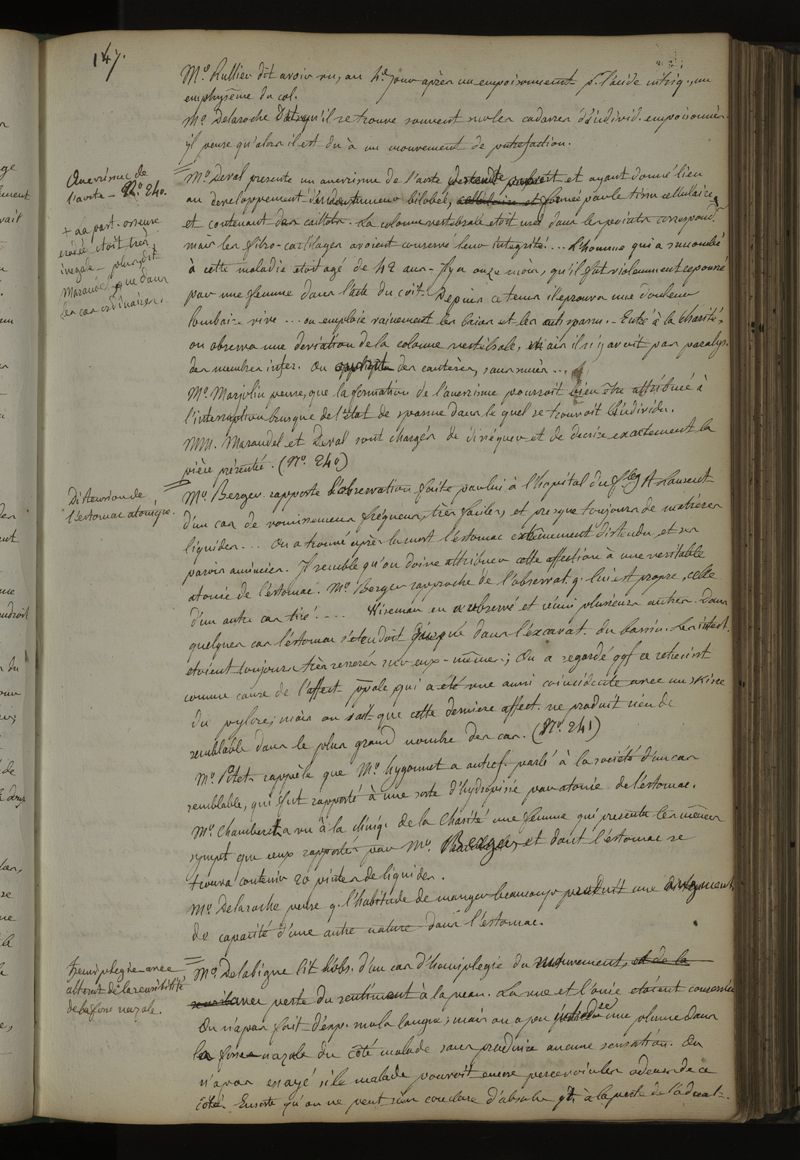 147.
Mr. Rullier dit avoir vu, au 4e jour après un empoisonnement p. l'acide nitriq., un
emphysème du col.
Mr. Delaroche dit qu'il se trouve souvent sur les cadavres d'individ. empoisonnés
il pense qu'alors il est dû à un mouvement de putréfaction.
Anevrisme de
l'aorte - No. 240.
+ sa part. osseuse
étoit très
inegale - plus dit
Marandel que dans
les cas ordinaires.
Mr. Deval presente un anevrisme de l'aorte et ayant donné lieu
au developpement d'une tumeur bilobée, formée par le tissu cellulaire
et contenant des caillots. La colonne vertebrale etoit usée dans les points correspond.
mais les fibro-cartilages avoient conservé leur integrité.... L'homme qui a succombé
à cette maladie etoit agé de 42 ans - Il y a onze mois, qu'il fut violemment repoussé
par une femme dans l'acte du coit. Depuis ce tems il eprouva une douleur
lombaire vive ... on employa vainement les bains et les anti spasm. - Entré à la charité,
on observa une deviation de la colonne vertebrale, mais il n'y avoit pas paralys.
des membres infer. On des cauteres, sans succès ...
Mr. Marjolin pense, que la formation de l'anevrisme pourroit bien être attribuée à
l'interruption brusque de l'état de spasme dans le quel se trouvoit l'individu.
MM. Marandel et Deval sont chargés de dissequer et de decrire exactement la
pièce présentée. (No. 240)
Distension de
l'estomac atonique.
Mr. Berger rapporte l'observation faite par lui à l'hopital du fbg St Laurent
d'un cas de vomissemens fréquens, très faciles, et presque toujours de matières
liquides ... On a trouvé après la mort l'estomac extrêmement distendu, et ses
parois amincies. Il semble qu'on doive attribuer cette affection à une veritable
atonie de l'estomac. Mr. Berger rapproche de l'observat. q. lui est propre, celle
d'un autre cas tiré .... en a observé et réuni plusieurs autres. Dans
quelques cas l'estomac s'etendoit jusque dans l'excavat. du bassin. Les intest.
etoient toujours très resserrés sur eux-mêmes; On a regardé qqf ce retrecist
comme cause de l'affect. ppale qui a été vue aussi coincidente avec un
du pylore; mais on sait que cette derniere affect. ne produit rien de
semblable dans le plus grand nombre des cas. (No. 241)
Mr. rappèle que Mr. hygonnet a autref. parlé à la société d'un cas
semblable, qui fut rapporté à une sorte d'hydropisie par atonie de l'estomac.
Mr. Chamberet a vu à la cliniq. de la Charité une femme qui presente les mêmes
sympt. que ceux rapportés par Mr. Berger et dont l'estomac se
trouva contenir 20 pintes de liquides.
Mr. Delaroche pense q. l'habitude de manger beaucoup produit une augment.
de capacité d'une autre nature dans l'estomac.
hemiplegie avec
de la sensibilité
de la fosse nazale.
Mr. Delabigne lit l'obs. d'un cas d'hemiplegie du mouvement, et de la
avec perte du sentiment à la peau. La vue et l'ouie etoient conservées
On n'a pas fait d'exp. sur la langue; mais on a pu introduire une plume dans
la fosse nazale du côté malade sans produire aucune sensation. On
n'a pas essayé si le malade pouvoit encore percevoir les odeurs de ce
côté. Ensorte qu'on ne peut rien conclure d'absolu qt à la perte de l'odorat.